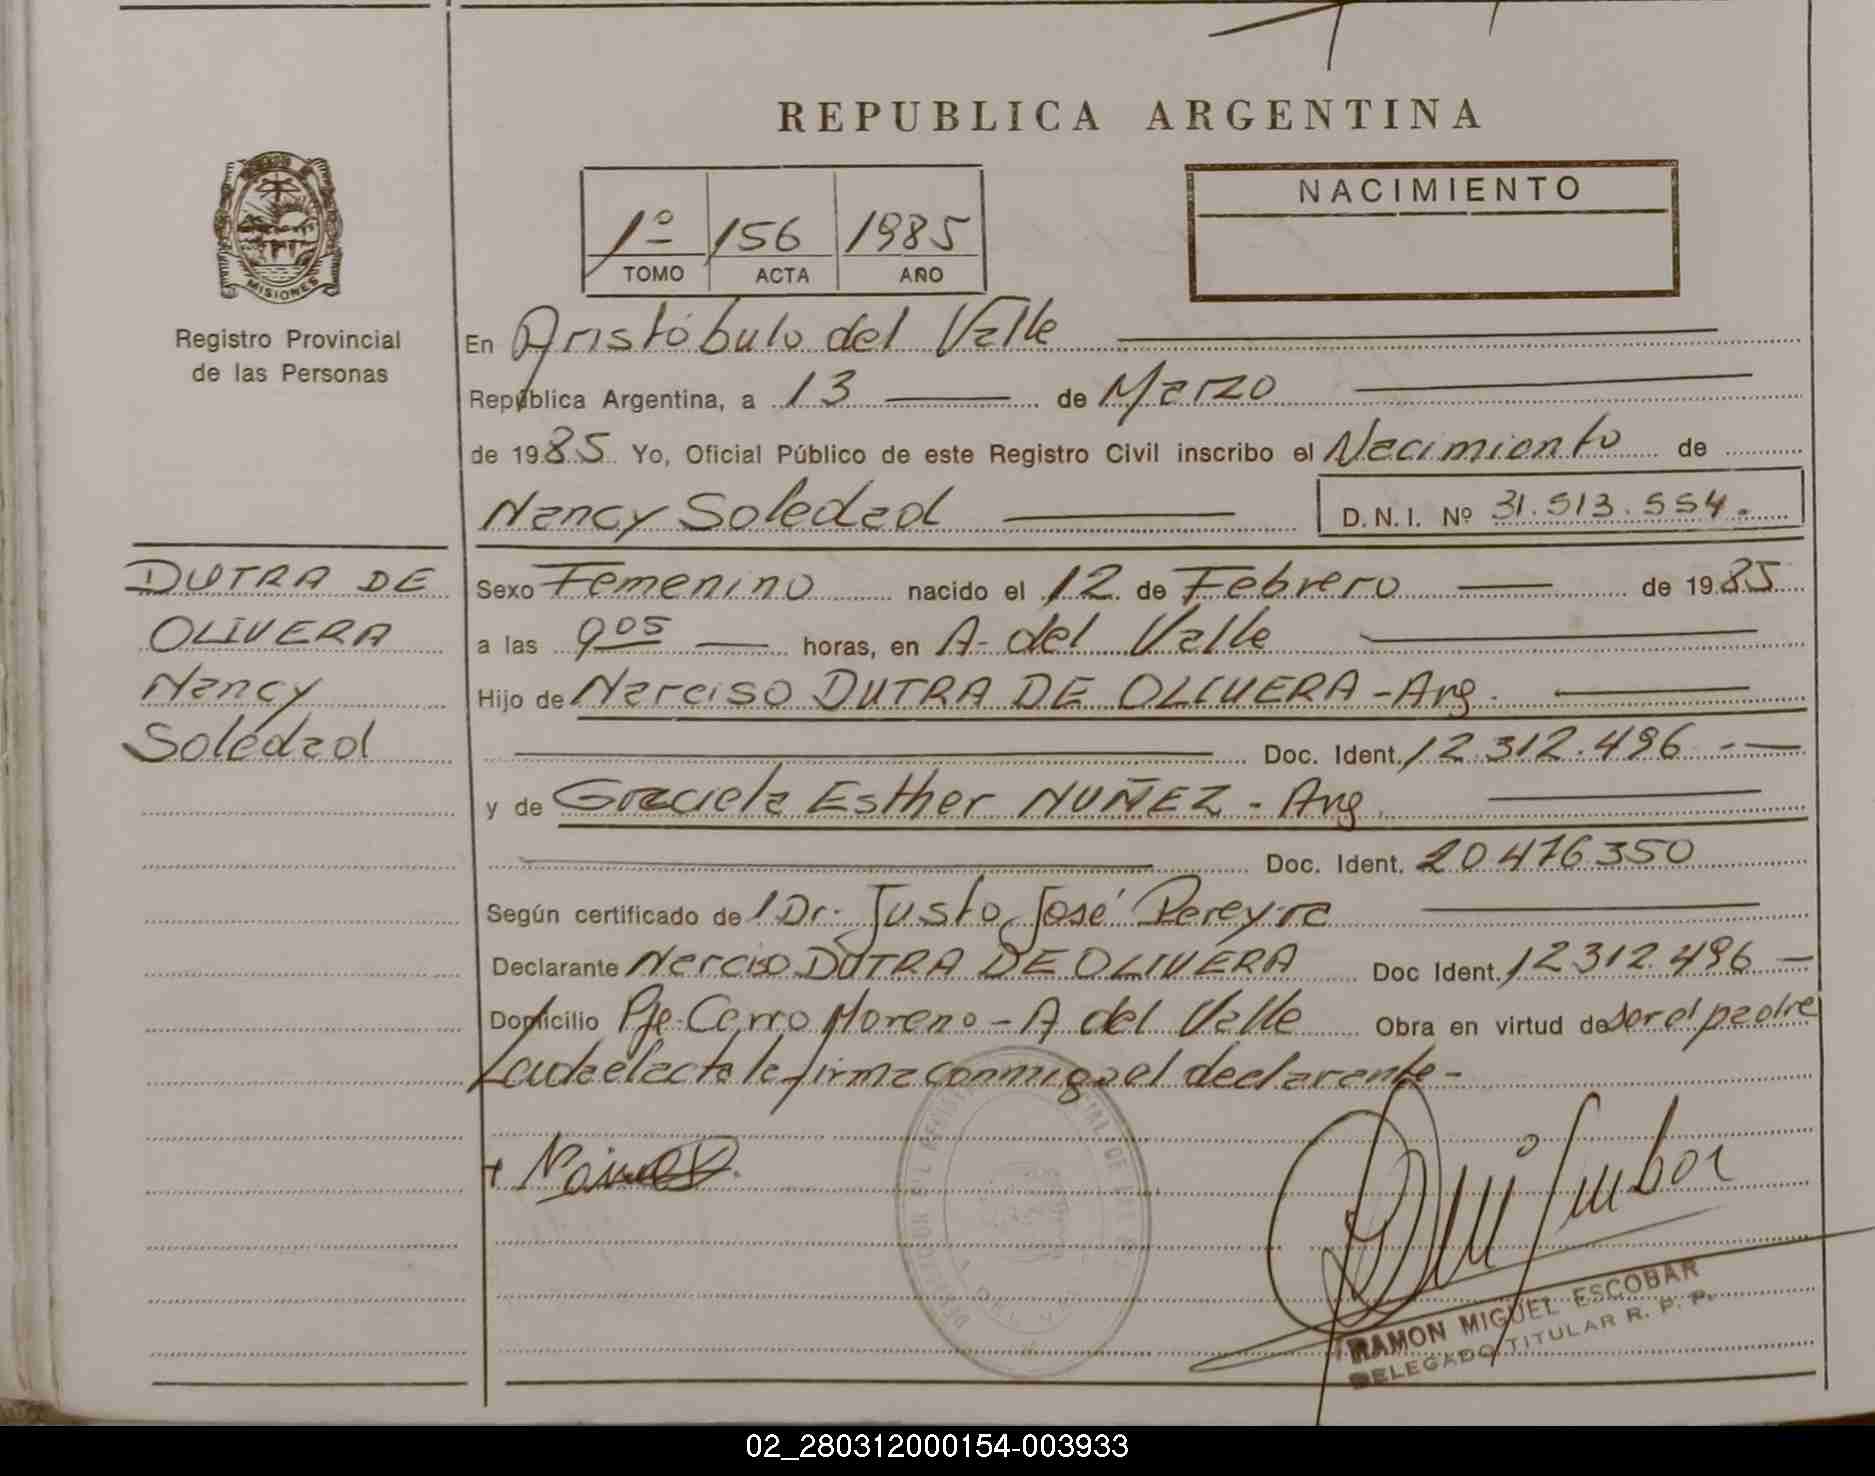 REPUBLICA ARGENTINA
NACIMIENTO
1º 156 1985
TOMO ACTA AÑO
MISIONES
Registro Provincial
de las Personas
En Aristóbulo del Valle
República Argentina, a 13 de Marzo
de 1985 Yo, Oficial Público de este Registro Civil inscribo el Nacimiento de
Nancy Soledad D.N.I. Nº 31.513.554.
DUTRA DE
OLIVERA
Nancy
Soledad
Sexo Femenino nacido el 12 de Febrero de 1985
a las 9 05 horas, en A- del Valle
Hijo de Narciso DUTRA DE OLIVERA - Arg.
Doc. Ident. 12.312.496
y de Graciela Esther NUÑEZ - Arg.
Doc. Ident. 20.476.350
Según certificado del Dr. Justo José Pereyra
Declarante Narciso DUTRA DE OLIVERA Doc Ident. 12.312.496
Domicilio Pje. Cerro Moreno - A del Valle Obra en virtud de ser el padre
Leida el acta la firma conmigo el declarante -
RAMON MIGUEL ESCOBAR
DELEGADO TITULAR R. P. P.
02_280312000154-003933